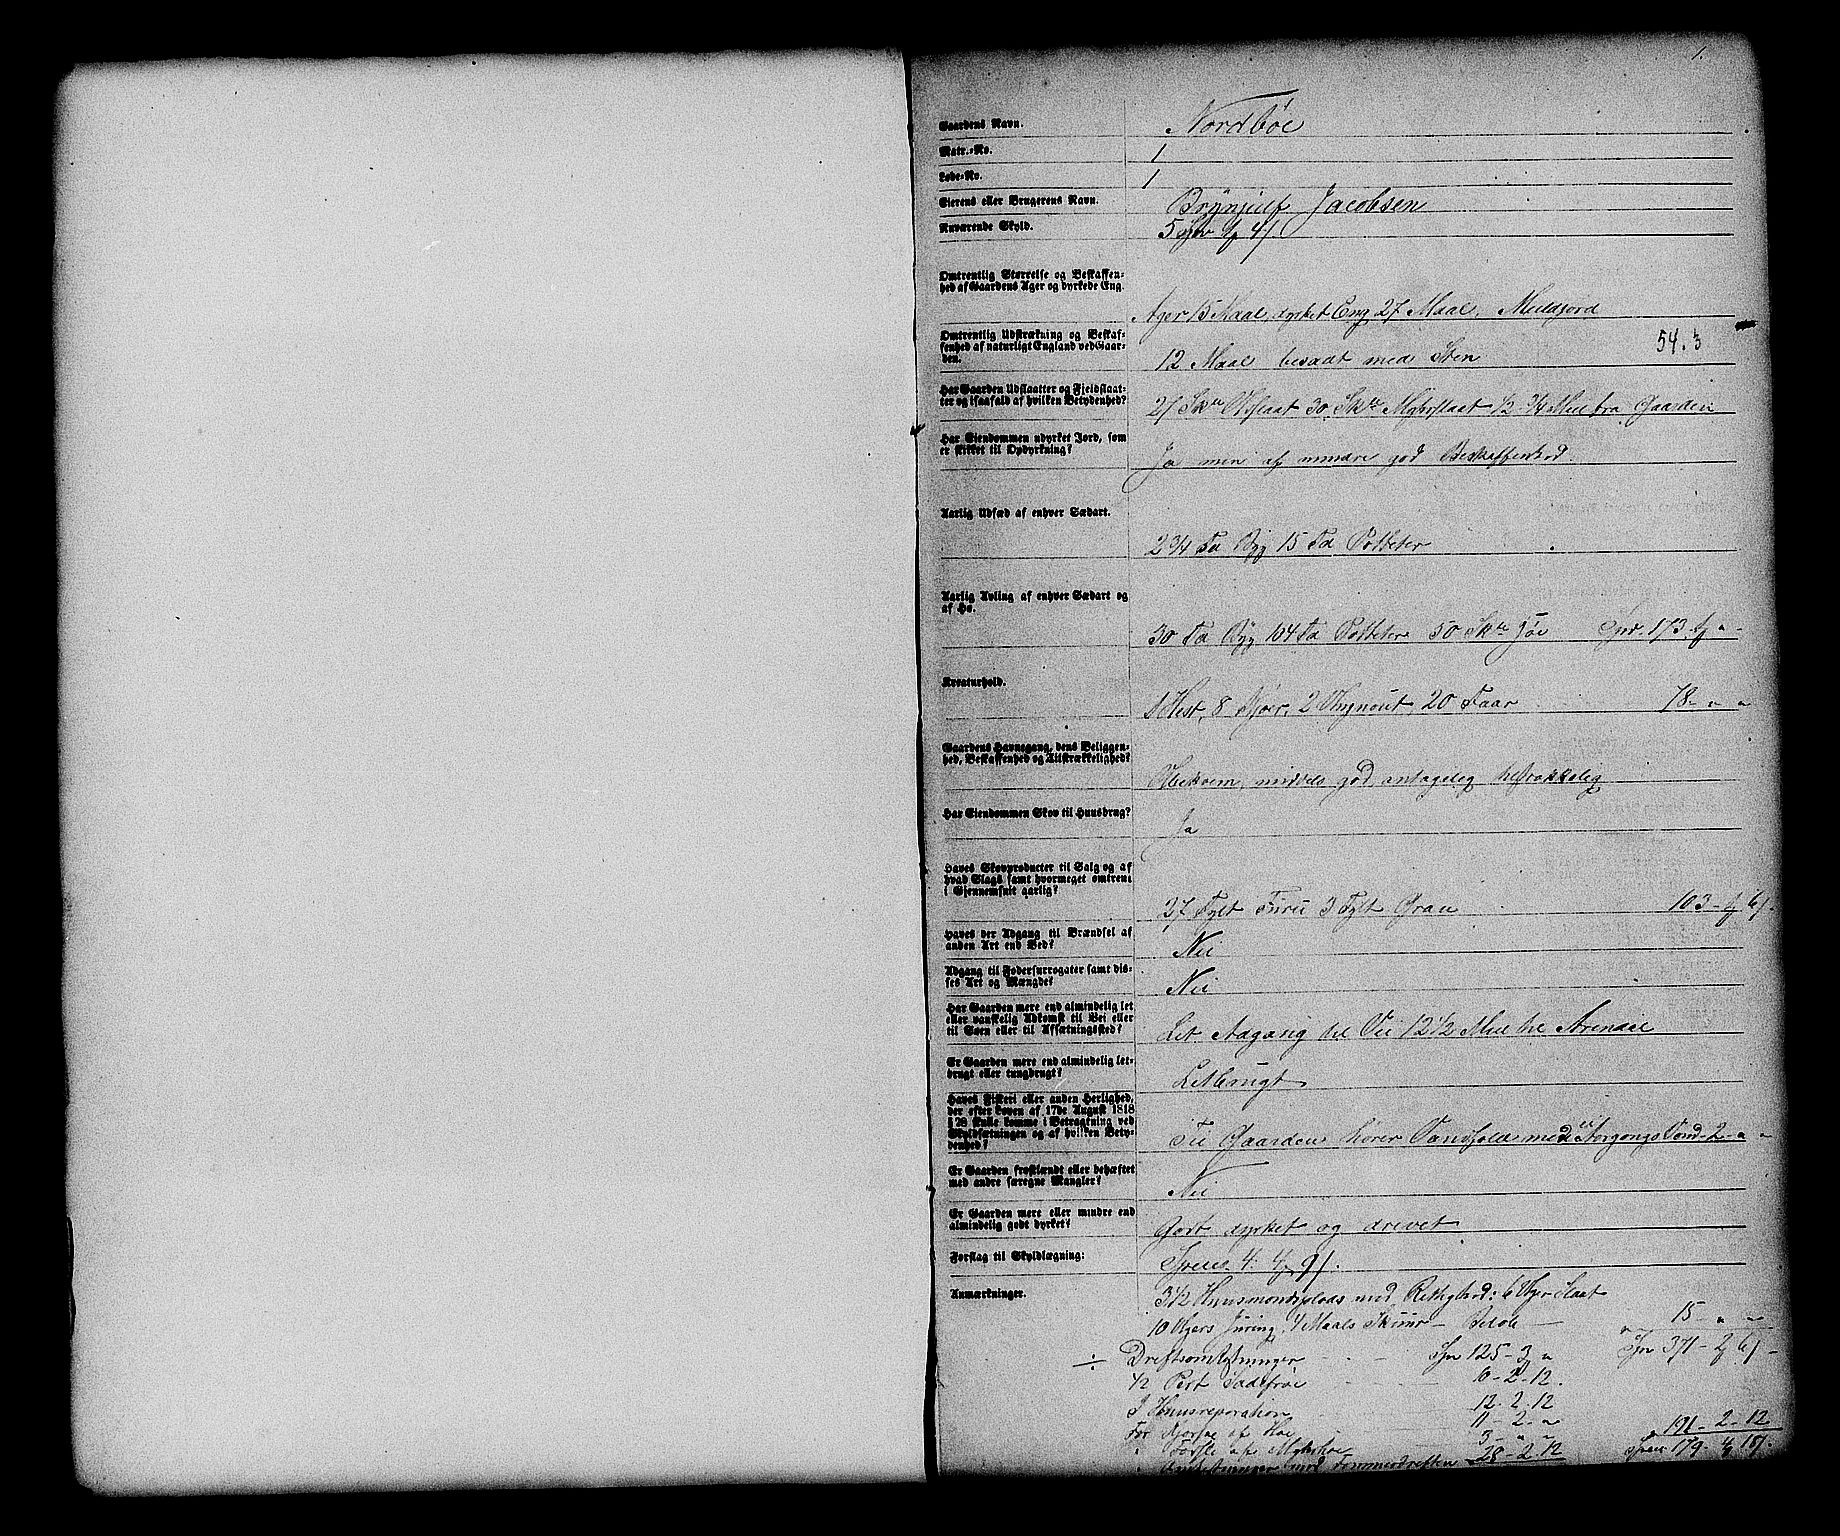 1.
Gaardens Navn. Nordböe
Matr.-No. 1
Løbe-No. 1
Eierens eller Brugerens Navn. Brynjulf Jacobsen
Nuværende Skyld. 5
Omtrentlig Størrelse og Beskaffen-
hed af Gaardens Ager og dyrkede Eng.
Ager 15 Maal, dyrket Eng 27 Maal, Muldjord
Omtrentlig Udstrækning og Beskaf-
fenhed af naturligt England ved Gaar-
den.
12 Maal besaat med Sten
54.3
Har Gaarden Udslaatter og Fjeldslaat-
ter og isaafald af hvilken Betydenhed?
27 Skr Udslaat 30 Skr Myhrslaat 1/2 3/4 Miil fra Gaarden
Har Eiendommen udyrket Jord, som
er skikket til Opdyrkning?
Ja men af mindre god Beskaffenhed
Aarlig Udsæd af enhver Sædart.
2 3/4 Td Byg 15 Td Potteter
Aarlig Avling af enhver Sædart og
af Hø.
30 Td Byg 104 Td Potteter 50 Skr Høe Spd. 173
Kreaturhold.
1 Hest, 8 Kjør, 2 Ungnout, 20 Faar 78 - " "
Gaardens Havnegang, dens Beliggen-
hed, Beskaffenhed og Tilstrækkelighed?
Ubekvem, middels god, antagelig tilstrækkelig
Har Eiendommen Skov til Huusbrug?
Ja
Haves Skovproducter til Salg og af
hvad Slags samt hvormeget omtrent
i Gjennemsnit aarlig?
27 Tylt Furu 3 Tylt Gran 103
Haves der Adgang til Brændsel af
anden Art end Ved?
Nei
Adgang til Fodersurrogater samt dis-
ses Art og Mængde?
Nei
Har Gaarden mere end almindelig let
eller vanskelig Adkomst til Vei eller
til Søen eller til Afsætningssted?
Let Adgang til Vei 12 1/2 Miil til Arendal
Er Gaarden mere end almindelig let-
brugt eller tungbrugt?
Letbrugt
Haves Fiskeri eller anden Herlighed,
der efter Loven af 17de August 1818
§ 28 skulle komme i Betragtning ved
Skyldsætningen og af hvilken Bety-
denhed?
Til Gaarden hører Vandfald med 2 - " "
Er Gaarden frostlændt eller behæftet
med andre særegne Mangler?
Nei
Er Gaarden mere eller mindre end
almindelig godt dyrket?
Godt dyrket og drevet
Forslag til Skyldlægning:
4. 4 9
Anmærkninger.
3 1/2 Huusmandsplads med
10 Ugers 15 - " "
÷ Driftsomkostninger Spd 125 - 3 " Spd 371 - 2
10 - 2 - 12.
Huusreparation 12. 2. 12
For Kjørsel af Høe 11 - 2 - "
3 - " " 191 - 2 - 12
Tømmerdriften 28 - 2. 12 179